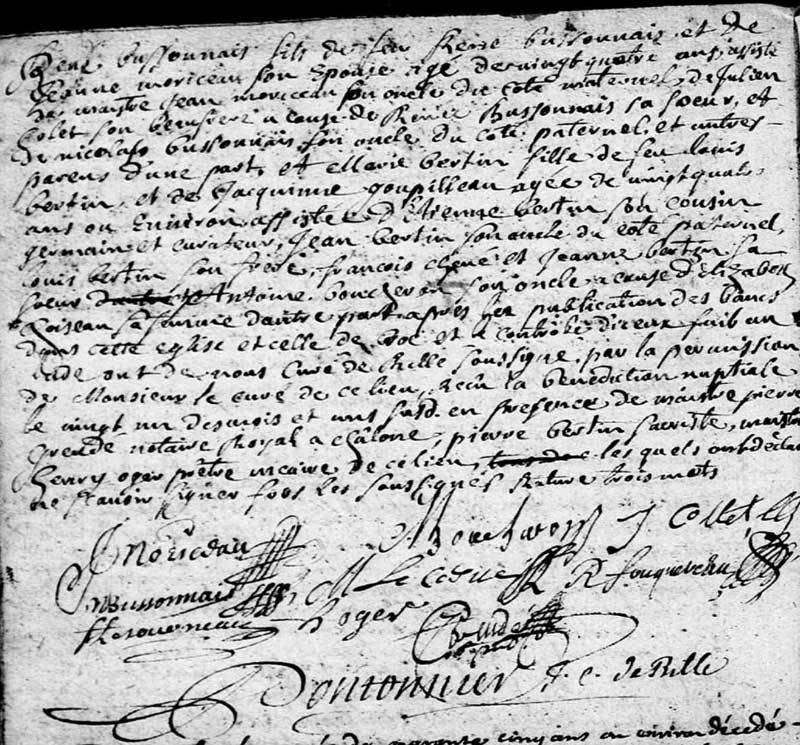 René bussonnais fils de feu René bussonnais et de
Jeanne moriceau son Epouse agé de vingt quatre ans assisté
de maistre Jean moriceau son oncle du coté maternel, de Julien
Colet son beaufrere a cause de Renée Bussonnais sa soeur, et
de nicolas bussonnais son oncle du coté paternel, et autres
parens d'une part, et Marie bertin fille de feu louis
bertin, et de Jacquinne goupilleau agée de vingt quatre
ans ou Environ assistée d'Etienne bertin son cousin
germain et curateur, Jean bertin son oncle du coté paternel,
louis bertin son frere, francois chene et Jeanne bertin sa
soeur Antoine boucheron son oncle a cause d'Elizabeth
Loiseau sa femme d'autre part apres les publication des bancs
dans cette eglise et celle de et a controlle d'iceux fait au
ont de nous Curé de Rillé soussigné, par la permission
de Monsieur le curé de ce lieu, recu la benediction nuptiale
le vingt un des mois et ans susd. en presence de maistre pierre
Grendé notaire Royal a Chalone, pierre bertin sacriste, maistre
henry oger prêtre vicaire de ce lieu, les quels ont déclaré
ne scavoir signer fors les soussignés Rature trois mots
J Moriceau Boucheron J Collet
N Bussonnais M Lecoeue R fouquereau
Letourneau h oger Grudé
Boutonnier p. c. de Rillé
quarente cinq ans ou environ décédé